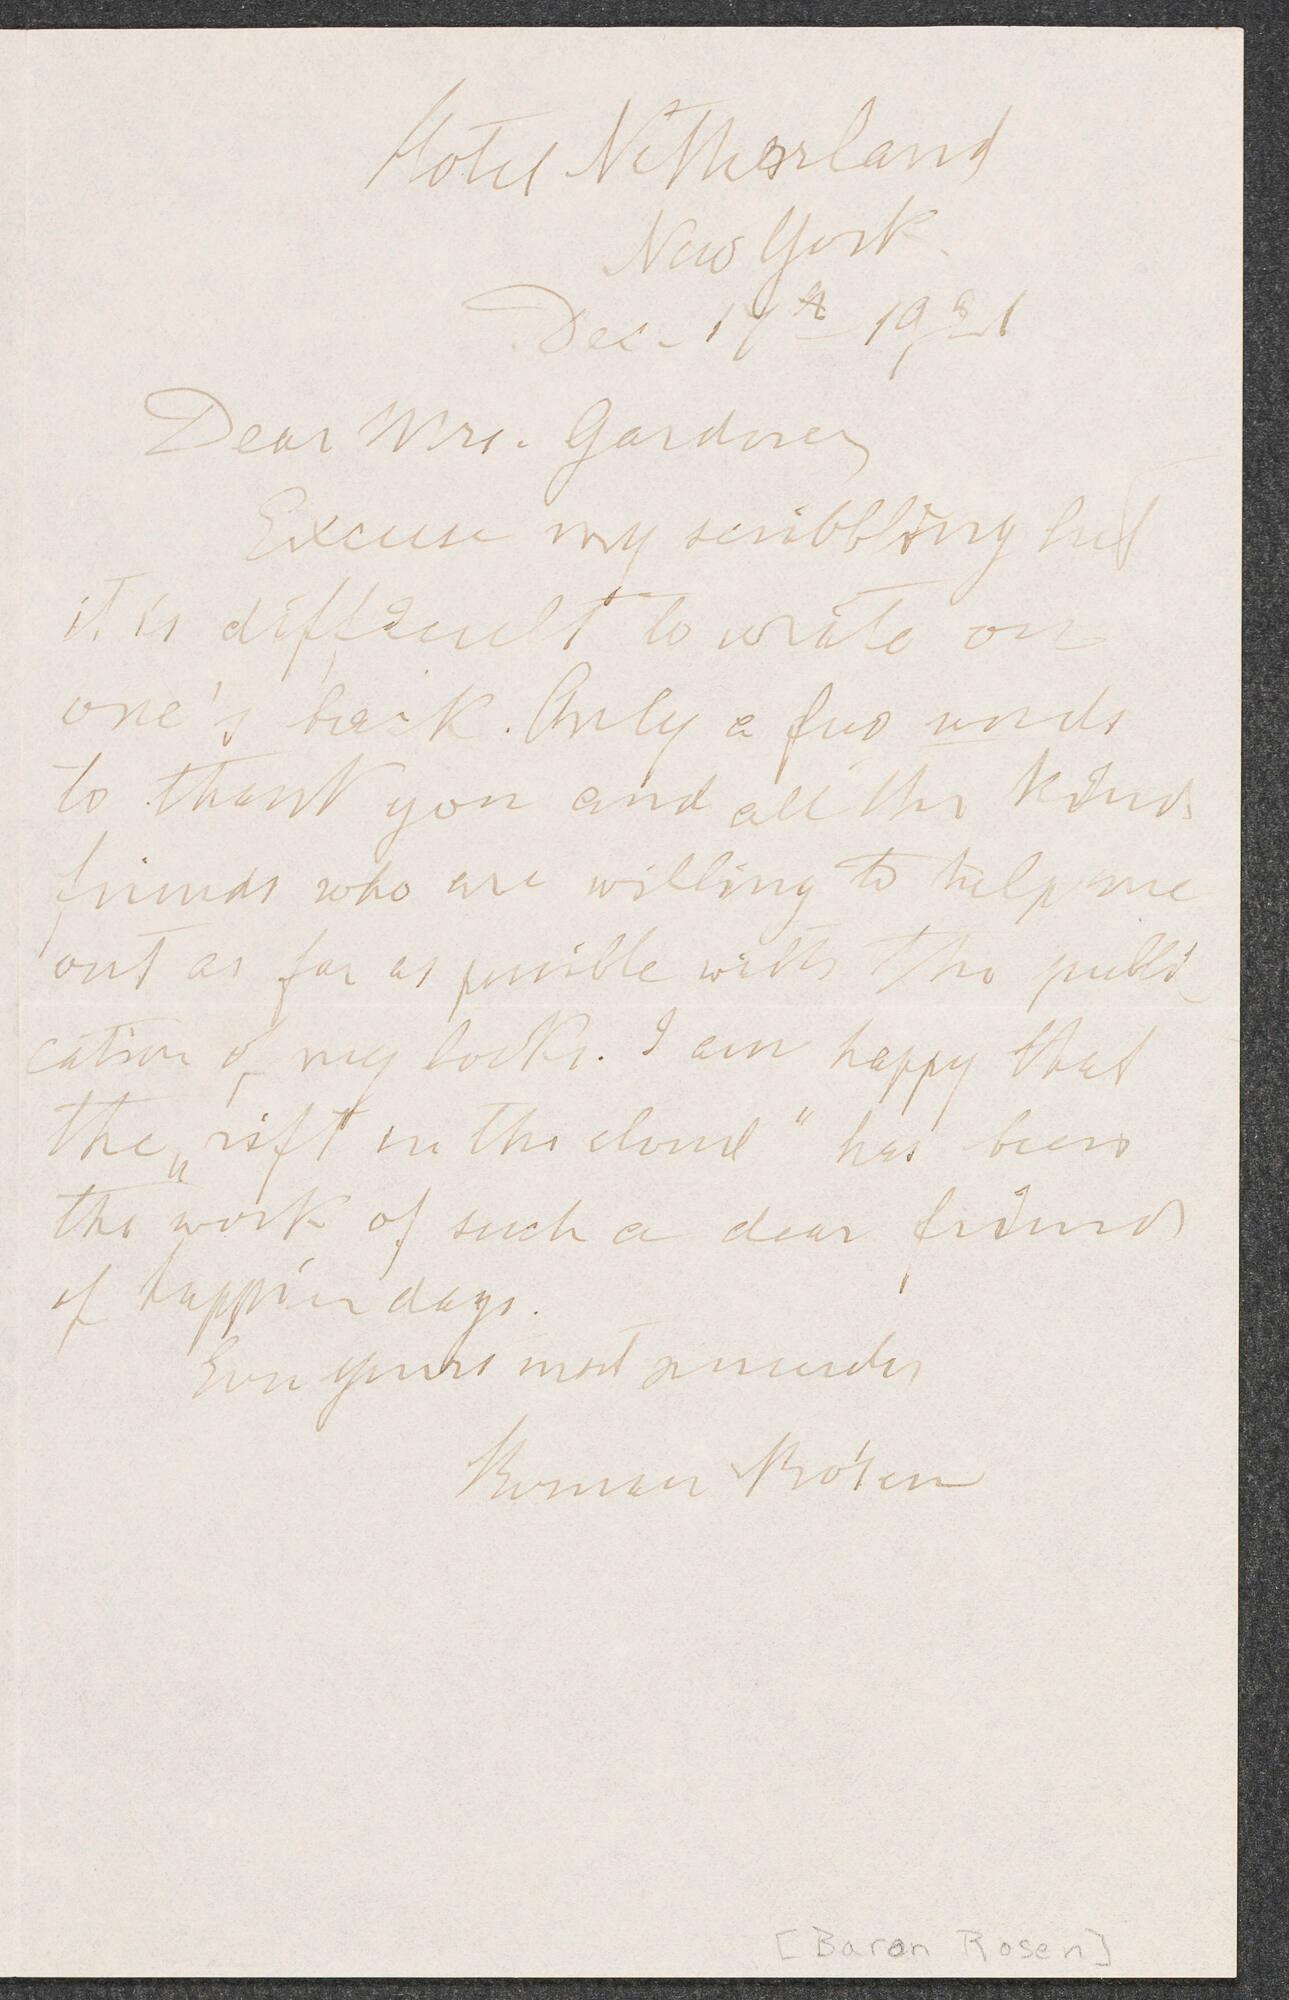 Hotel Netherland
New York
Dec. 17th 1921
Dear Mrs. Gardner
Excuse my scribbling but
it is difficult to write on
one's back. Only a few words
to thank you and all the kind
friends who are willing to help me
out as far as possible with the publi-
cation of my books. I am happy that
the „rift in the cloud" has been
the work of such a dear friend
of happier days.
Ever yours most sincerely
Roman Rosen
[Baron Rosen]